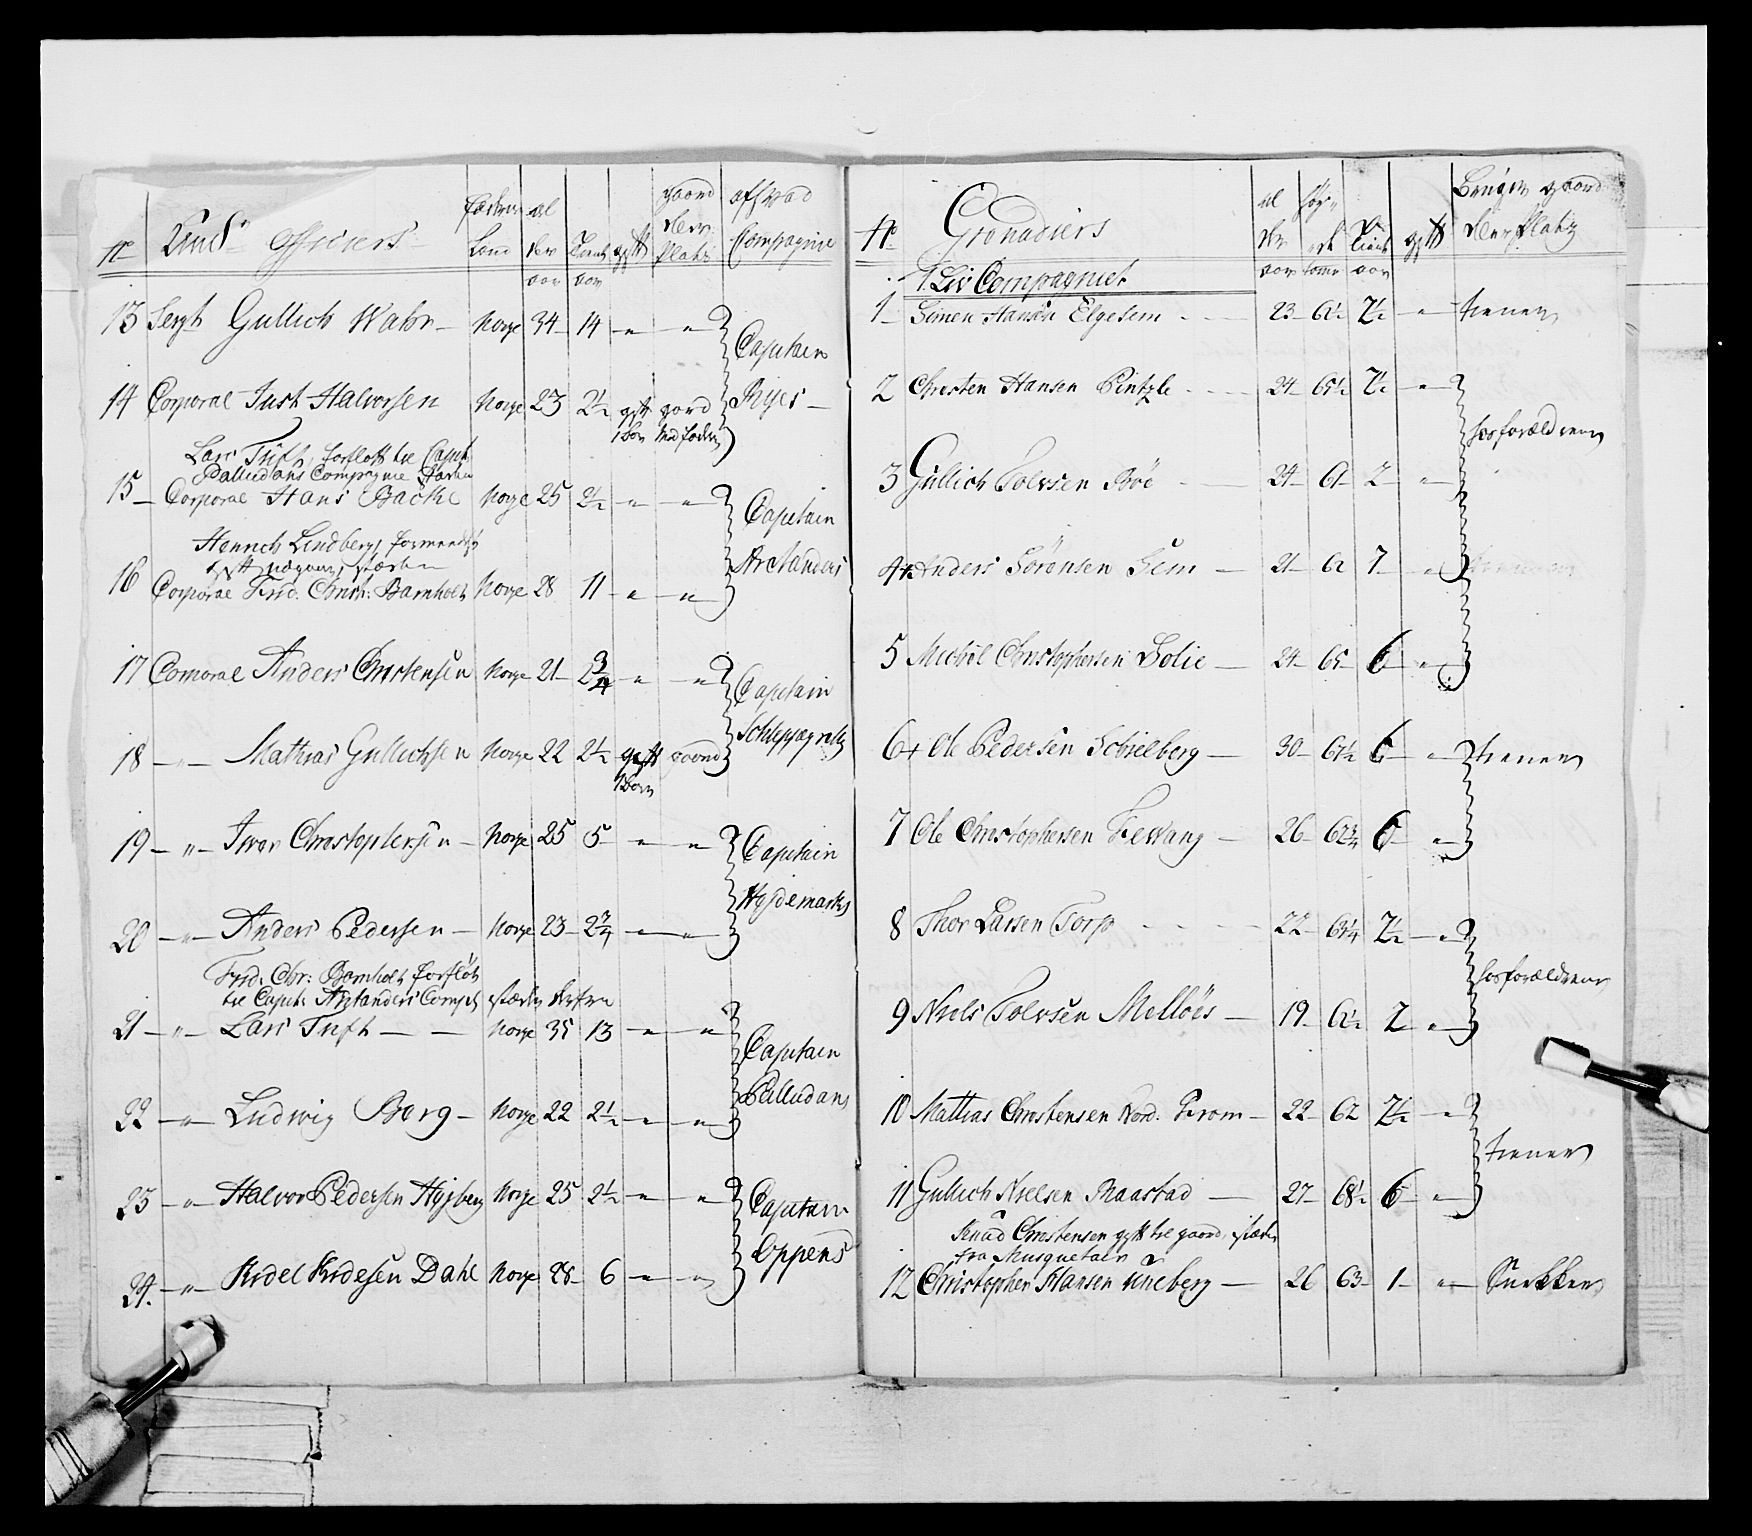 No Und Officiers
Fæderne Land
al der aar
Tient aar
gift
gaard eller Platz
af hvad Compagnie
13 Sergt Gullich Wahr – Norge 34 – 14 – " – "
Captain
Ryes –
14 Corporal Just Halvorsen Norge 23 2½ gift gaard
1 barn
Lars Tuft, forfløtt til Capt.
Palludans Compagnie
15 – Corporal Hans Backe Norge 25 2½ – " – "
Captain
Arctanders
Henrich Lindberg,
16 Corporal Frid. Christ: Barnholt Norge 28 11 – " – "
17 Corporal Anders Christensen Norge 21 – 2¾ – " – "
Captain
Schleppegrells
18 – " – Mathias Gullichsen Norge 22 2½ gift gaard
1 barn
19 – " – Iver Christophersen – Norge 25 5 – " – "
Captain
Hejdemarks
20 – " – Anders Pedersen – Norge 23 – 2¾ – " – "
Frid. Chr: Barnholt forfløt
til Capt: Arctanders Comp:
21 – " – Lars Tuft – – Norge 35 13 – " – "
Captain
Palludans
22 – " – Ludwig Borg – Norge 22 2½ – " – "
23 – " – Halvor Pedersen Norge 25 2½ – " – "
Captain
Oppens
24. – " – Dahl Norge 28 – 6 – " – "
No Grenadiers
al der aar
Tient aar
gift
Bruger gaard eller Platz
1 Liv Compagniet
1 – Simen Hansen Elgesem – 23 – 61½ 7½ – " – tiener
2 Christen Hansen Pintzle – 24 – 65½ 7½ – " –
hos forældrene
3 Gullich Bøe – 24 – 61 – 2 – " –
4 + Anders Sørensen Sem – 21 – 62 7 – " –
5 Michel Christophersen Solie – 24 – 65 – 6 – " –
6 + Ole Pedersen Schielberg – 30 – 61½ 6 – " – tiener
7 Ole Christophersen Fevang – 26 – 62¾ 6 – " –
8 Thor Larsen Torp – 22 – 63¼ 7½ – " –
hos forældrene
9 Niels Melløes – 19 – 62½ 2 – " –
10 Mathias Christensen Nord: From – 22 – 62 7½ – " –
tiener
11 Gullich Nielsen Raastad – 27 – 68½ 6 – " –
Knud Christensen gift til gaard,
fra Musqueterer
12 Christopher Hansen Uneberg – 26 63 – 1 – " – Snekker